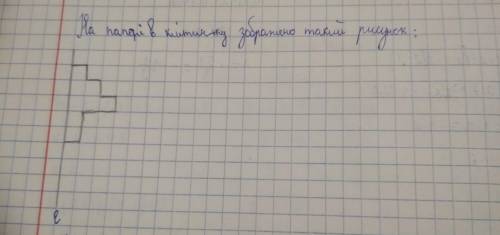 На папері в клітинку зображено такий рисунок:
ℓ